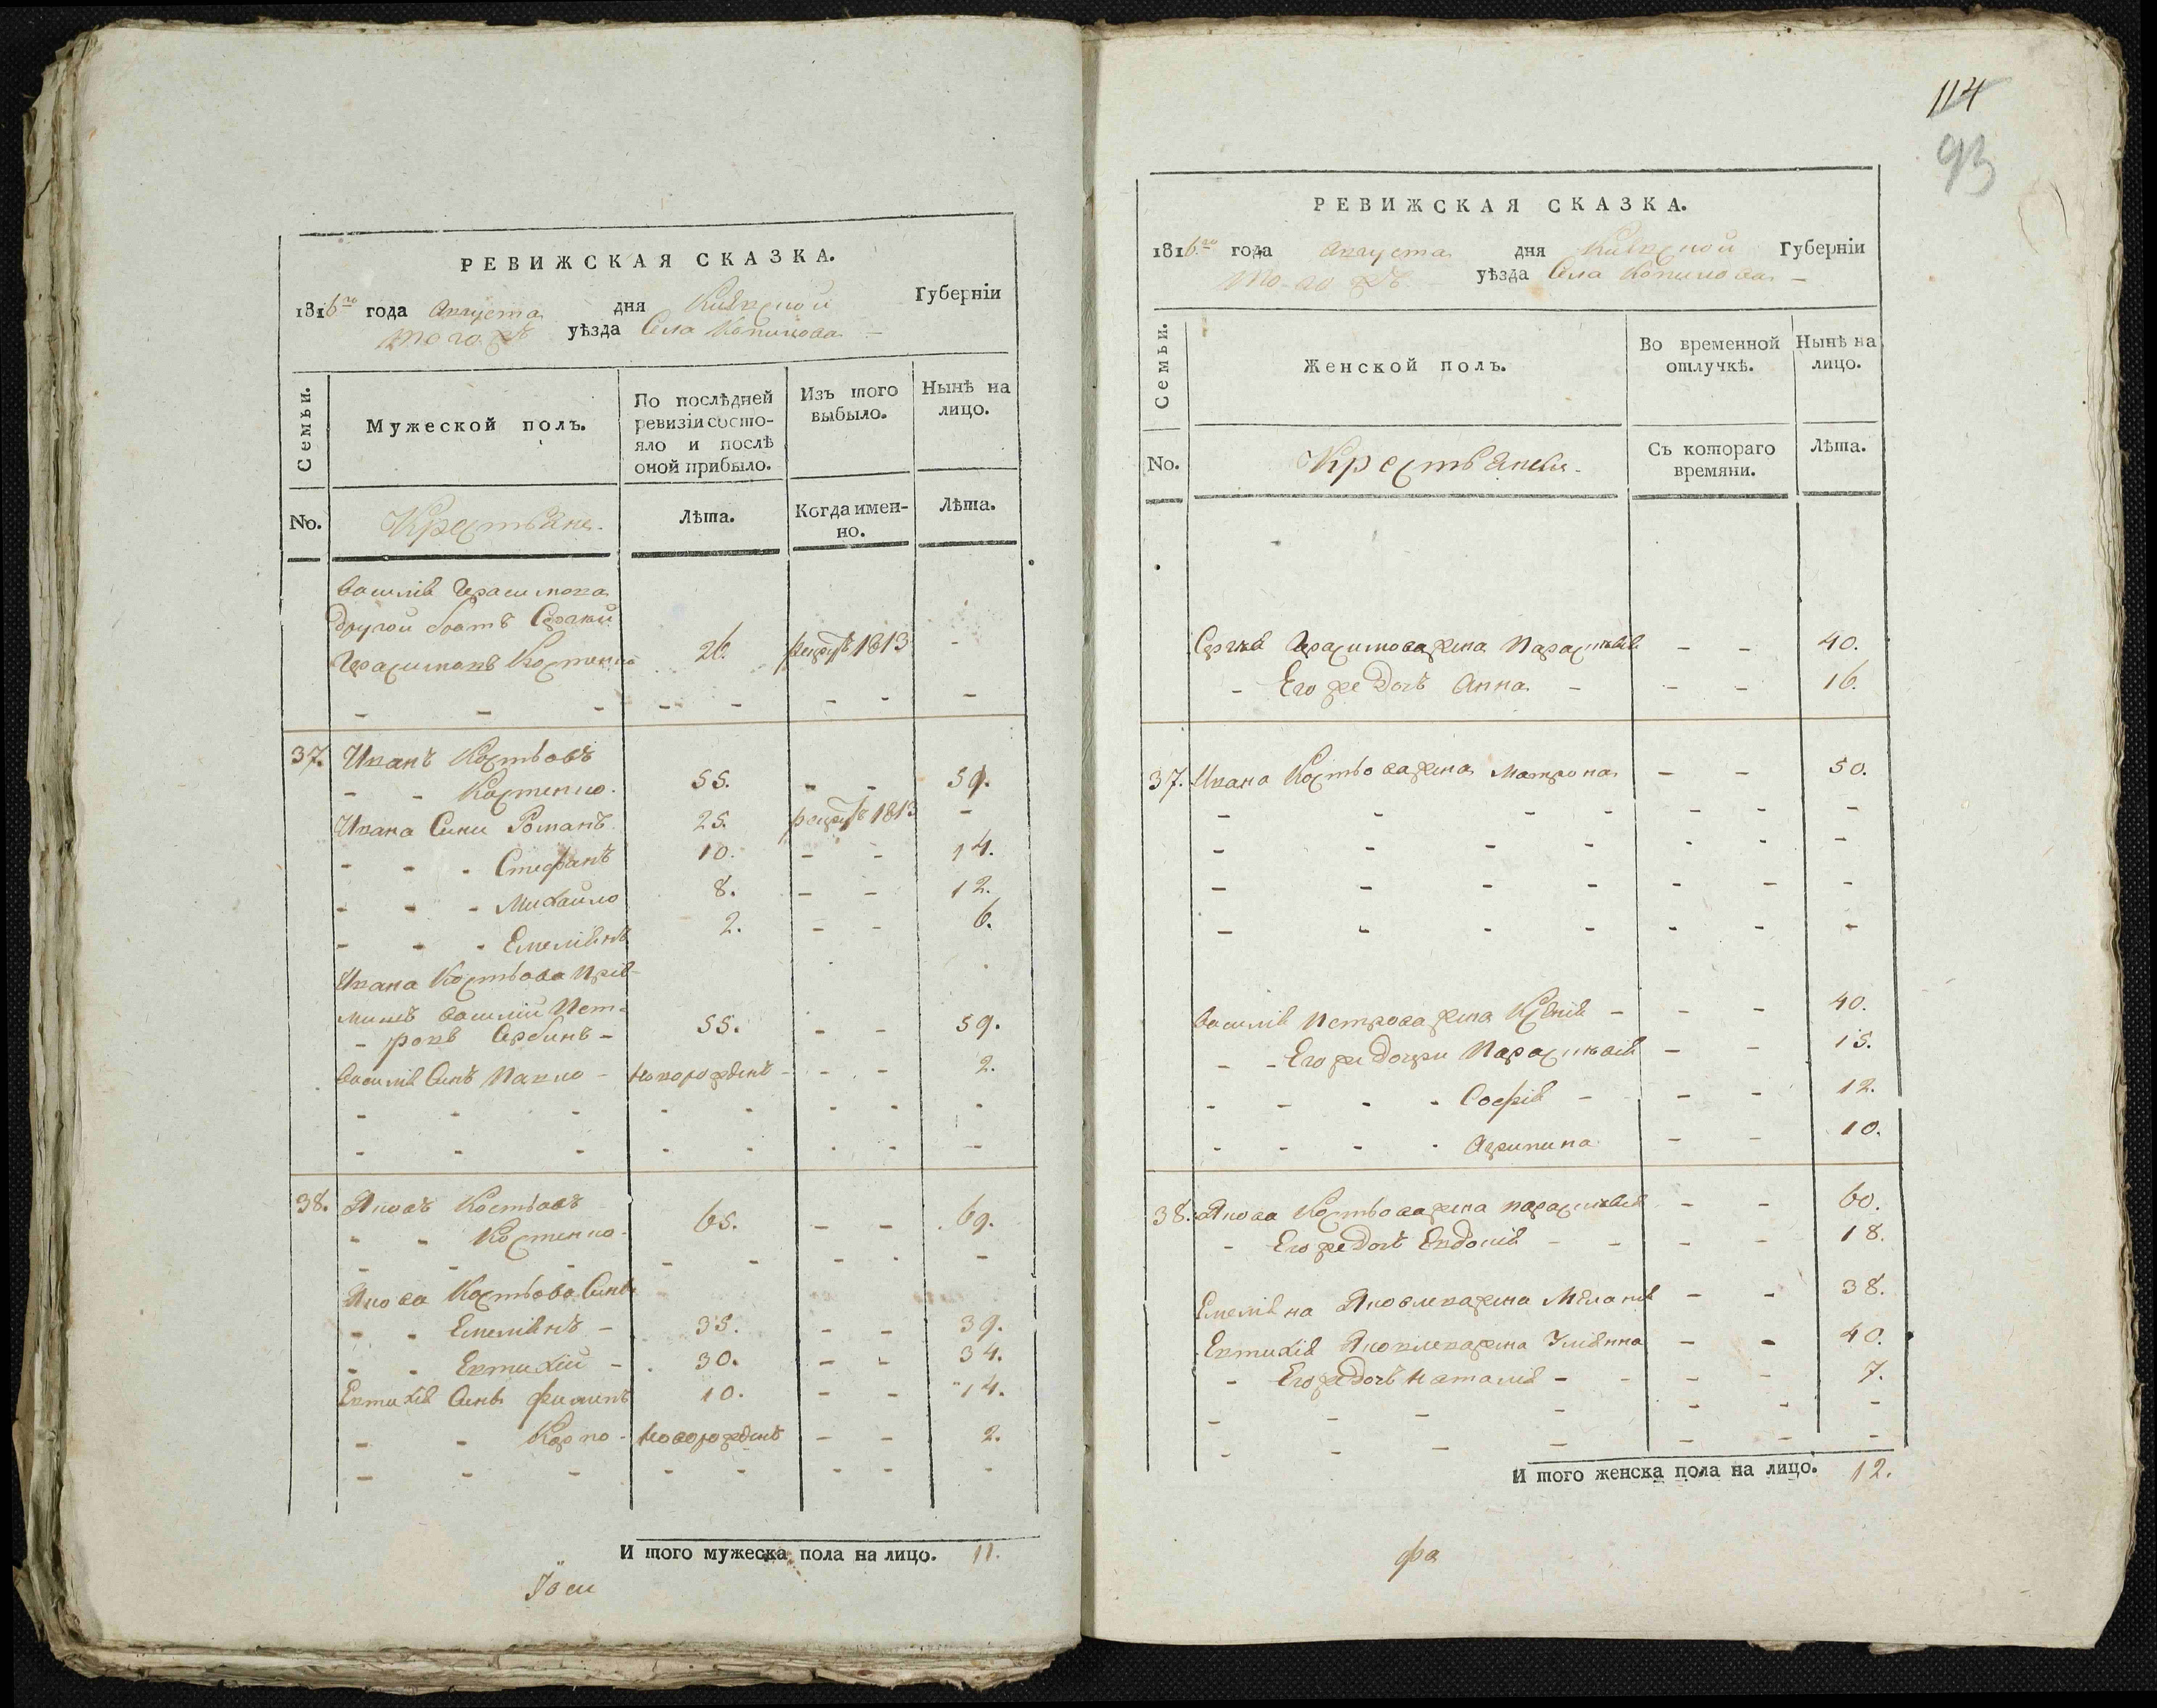 РЕВИЖСКАЯ СКАЗКА.
1816го года Августа дня Кіевской Губерніи
того жъ уѣзда Села Копилова
Семьи.
Мужеской полъ.
По послѣдней ревизіи состо-
яло и послѣ
оной прибыло.
Изъ того
выбыло.
Нынѣ на
лицо.
No.
Крестьяне.
Лѣта.
Когда имен-
но.
Лѣта.
Василія Герасимова
другой братъ Сергѣй
Герасимовъ Костенко 26. рекрутъ 1813 -
37. Иванъ Костьовъ
- - Костенко. 55. - - 59.
Ивана Сини Романъ 25. рекрутъ 1813 -
- - - Стефанъ 10. - - 14.
- - - Михайло 8. - - 12.
- - - Емеліянъ 2. - - 6.
Ивана Костьова Прій-
мишъ Василій Пет-
- ровъ - 55. - - 59.
Василія Синъ Павло - новорожденъ - - - 2.
38. Яковъ Костьовъ
- - Костенко - 65. - - 69.
Якова Костьова Сини
- - Емеліянъ - 35. - - 39.
- - Евтихій - 30. - - 34.
Евтихія Сини Филипъ 10. - - 14.
- - Карпо - новорожденъ - - 2.
И того мужеска пола на лицо. 11.
114
93
РЕВИЖСКАЯ СКАЗКА.
1816го года Августа дня Кіевской Губерніи
того жъ уѣзда Села Копилова -
Семьи.
Женской полъ.
Во временной
отлучкѣ.
Нынѣ на
лицо.
No.
Крестьянки.
Съ котораго
времяни.
Лѣта.
Сергѣя Герасимова жена Параскевія - - 40.
- Его же Дочь Анна - - - 16.
37. Ивана Костьова жена Матрона - - 50.
Василія Петрова жена Ксенія - - - 40.
- - Его же Дочри Параскевія - - 15.
- - - - Софія - - - 12.
- - - - Агрипина - - 10.
38. Якова Костьова жена Параскевія - - 60.
- Его же Дочь Евдокія - - - - 18.
Емеліяна Яковлева жена Меланія - - 38.
Евтихія Яковлева жена Уліянна - - 40.
- Его же Дочь Наталія - - - - 7.
И того женска пола на лицо. 12.